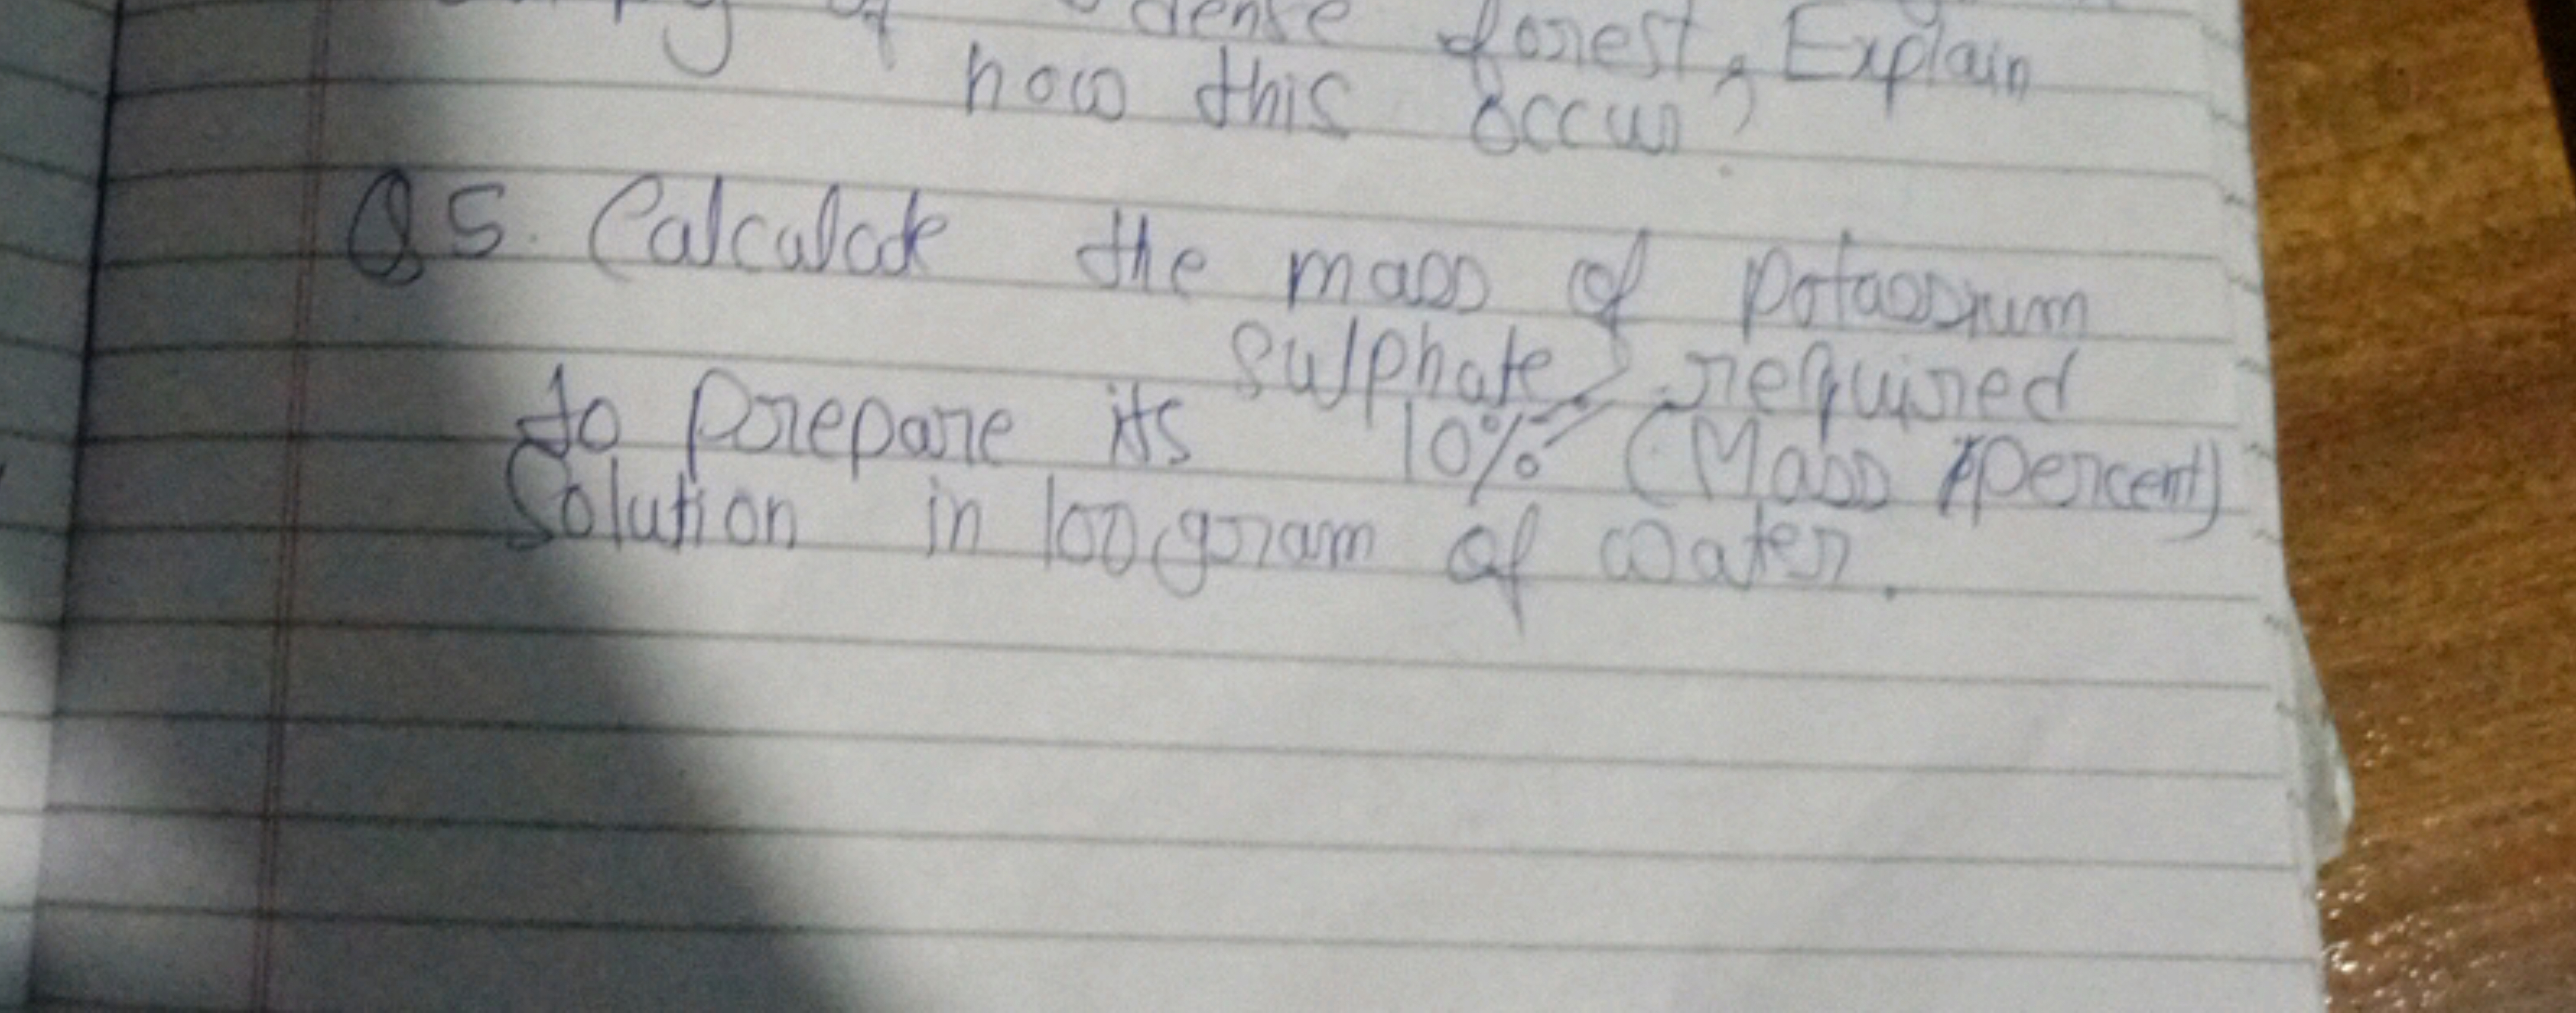 of dense forest, Explain
how this occur?
Q5. Calculate the mass of potassium
sulphate required
to prepare its 10% (Mass percent)
Solution in 100 gram of water.